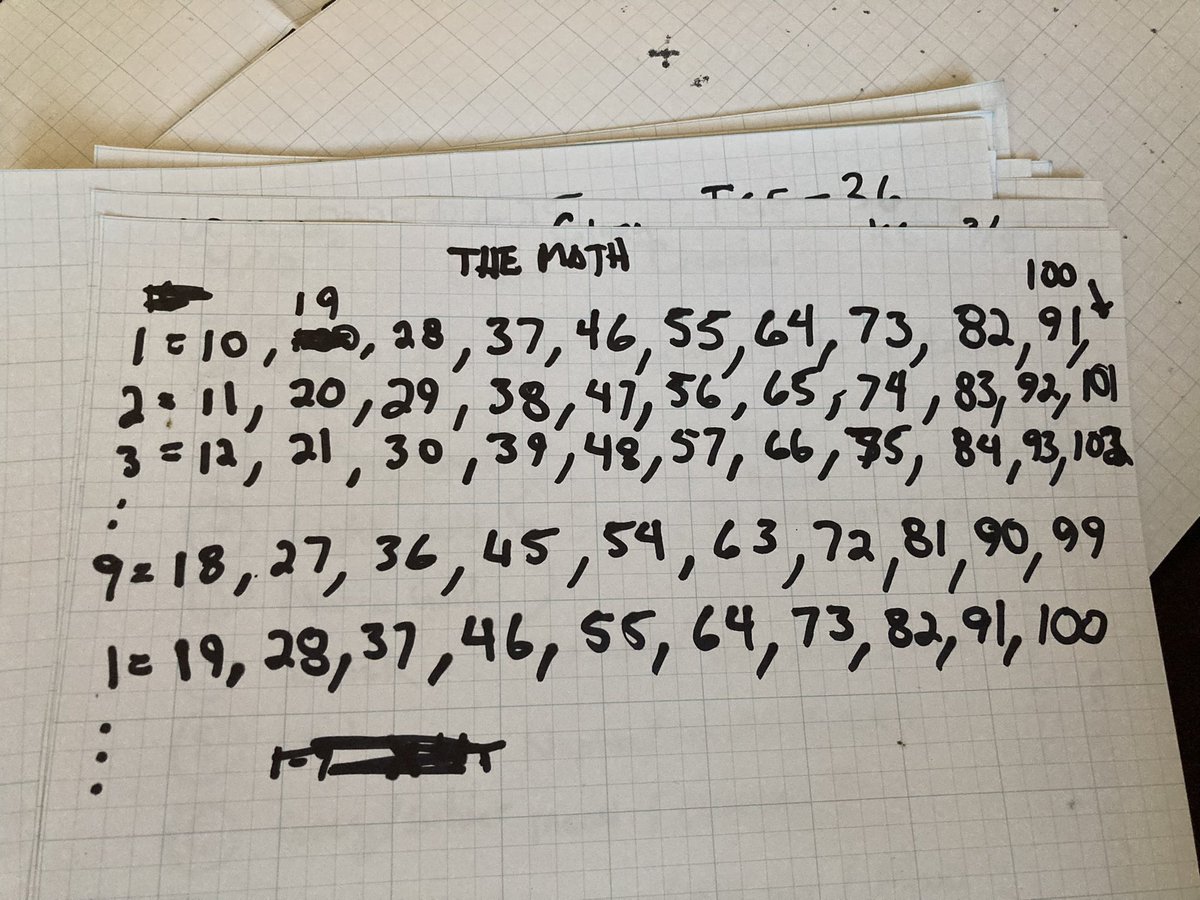 THE MATH
100
19
1 = 10, 28, 37, 46, 55, 64, 73, 82, 91,
2 = 11, 20, 29, 38, 47, 56, 65, 74, 83, 92, 101
3 = 12, 21, 30, 39, 48, 57, 66, 75, 84, 93, 102
9 = 18, 27, 36, 45, 54, 63, 72, 81, 90, 99
1 = 19, 28, 37, 46, 55, 64, 73, 82, 91, 100